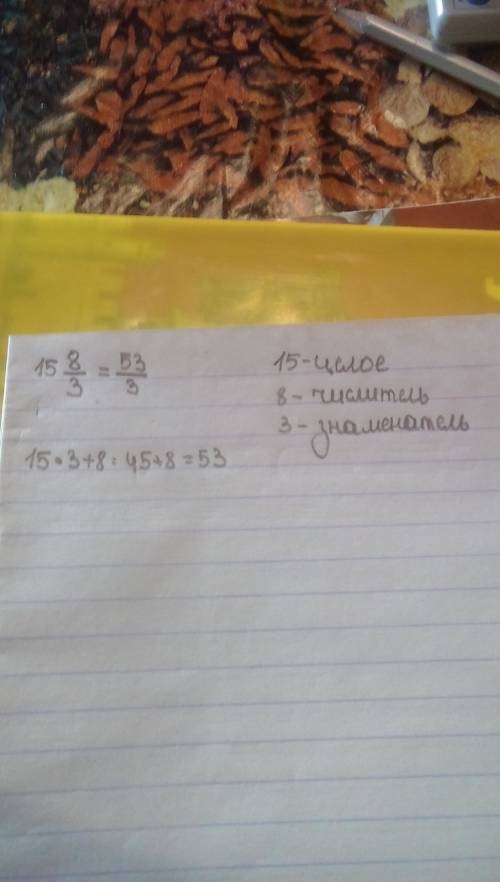 15 8/3 = 53/3
15 · 3 + 8 = 45 + 8 = 53
15 - целое
8 - числитель
3 - знаменатель